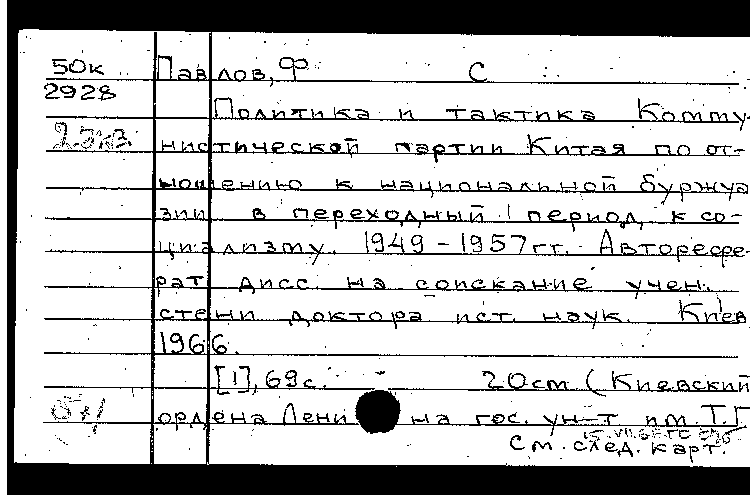 50к Павлов, Ф. С
2928
Политика и тактика Комму-
нистической партии Китая по от-
ношению к национальной буржуа
зии в переходный период к со-
циализму. 1949-1957 гг. Авторефе-
рат дисс. на соискание учен.
степи доктора ист. наук. Киев
1966.
[1], 69 с. 20 см (Киевский
ордена Лени на гос. ун-т им. Т.Г
См. след. карт.